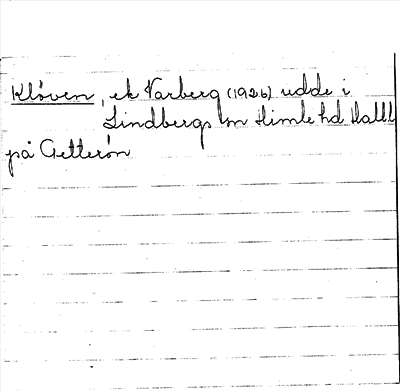 Klöven, ek Varberg (1926) udde i
Lindbergs sn Himle hd Hall
på Getterön